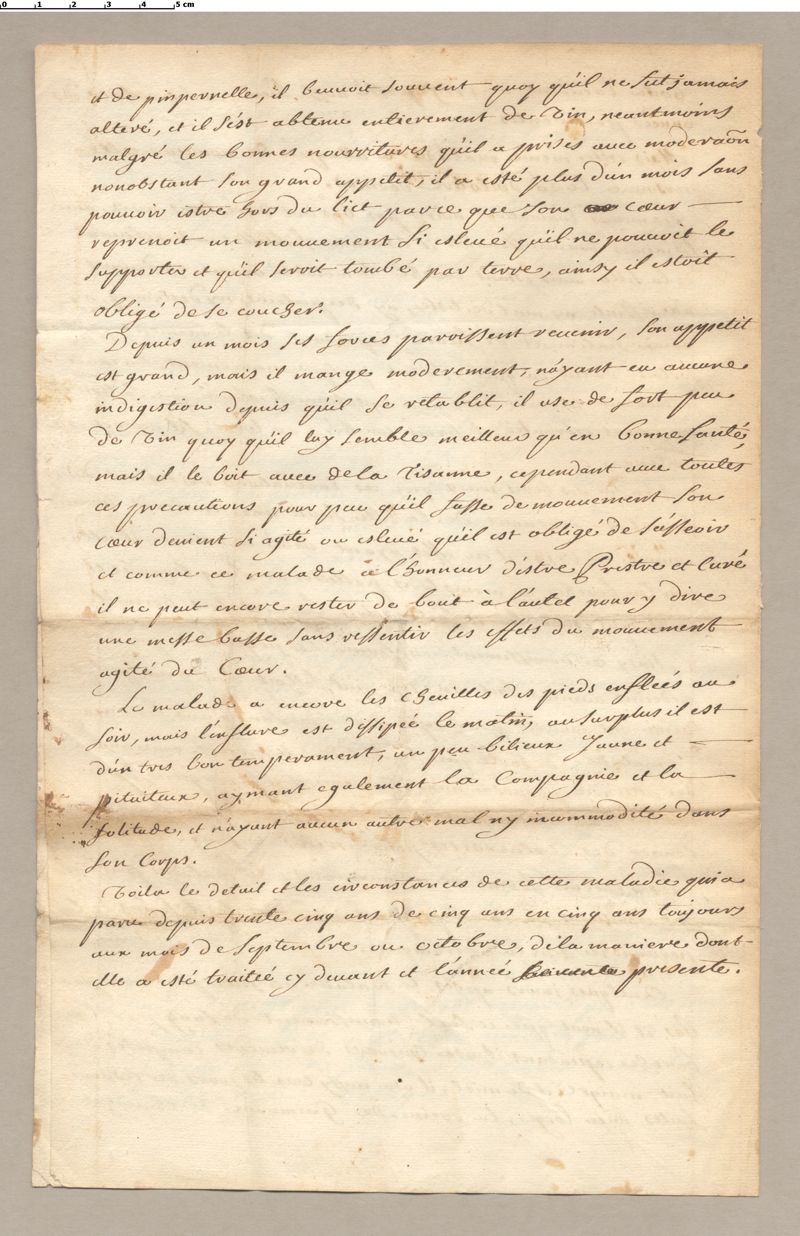 0 1 2 3 4 5 cm
et de pinpernelle, il beuvoit souvent quoy qu'il ne fut jamais
alteré, et il s'est abtenu entierement de vin, neantmoins
malgré les bonnes nourritures qu'il a prises avec moderaōn
nonobstant son grand appetit, il a esté plus d'un mois sans
pouvoir estre hors du lict parce que son cœur
reprenoit un mouvement si eslevé qu'il ne pouvoit le
supporter et qu'il seroit tombé par terre, ainsy il estoit
obligé de se coucher.
Depuis un mois ses forces paroissent revenir, son appetit
est grand, mais il mange moderement, n'ayant eu aucune
indigestion depuis qu'il se rétablit, il use de fort peu
de vin quoy qu'il luy semble meilleur qu'en bonne santé,
mais il le boit avec de la Tisanne, cependant avec toutes
ces precautions pour peu qu'il fasse de mouvement son
cœur devient si agité ou eslevé qu'il est obligé de s'asseoir
et comme ce malade a l'honneur d'estre Prestre et Curé
il ne peut encore rester de bout à l'autel pour y dire
une messe basse sans ressentir les effets du mouvement
agité du Cœur.
Le malade a encore les chevilles des pieds enflées au
soir, mais l'enflure est dissipée le matin, au surplus il est
d'un tres bon temperament, un peu bilieux Jaune et
pituiteux, aymant egalement la Compagnie et la
solitude, et n'ayant aucun autre mal ny incommodité dans
son Corps.
Voila le detail et les circonstances de cette maladie qui a
paru depuis trente cinq ans de cinq ans en cinq ans toujours
aux mois de Septembre ou octobre, de la maniere dont
elle a esté traitée cy devant et l'année presente.